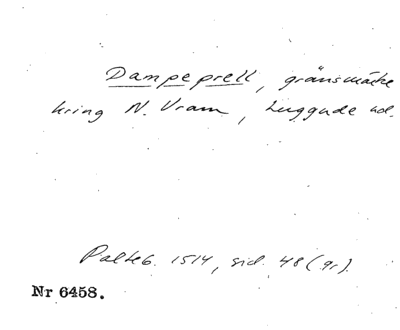 Dampeprell, gränsmärke
kring N. Vram, Luggude hd.
Palteb. 1514, sid. 48 (gr).
Nr 6458.